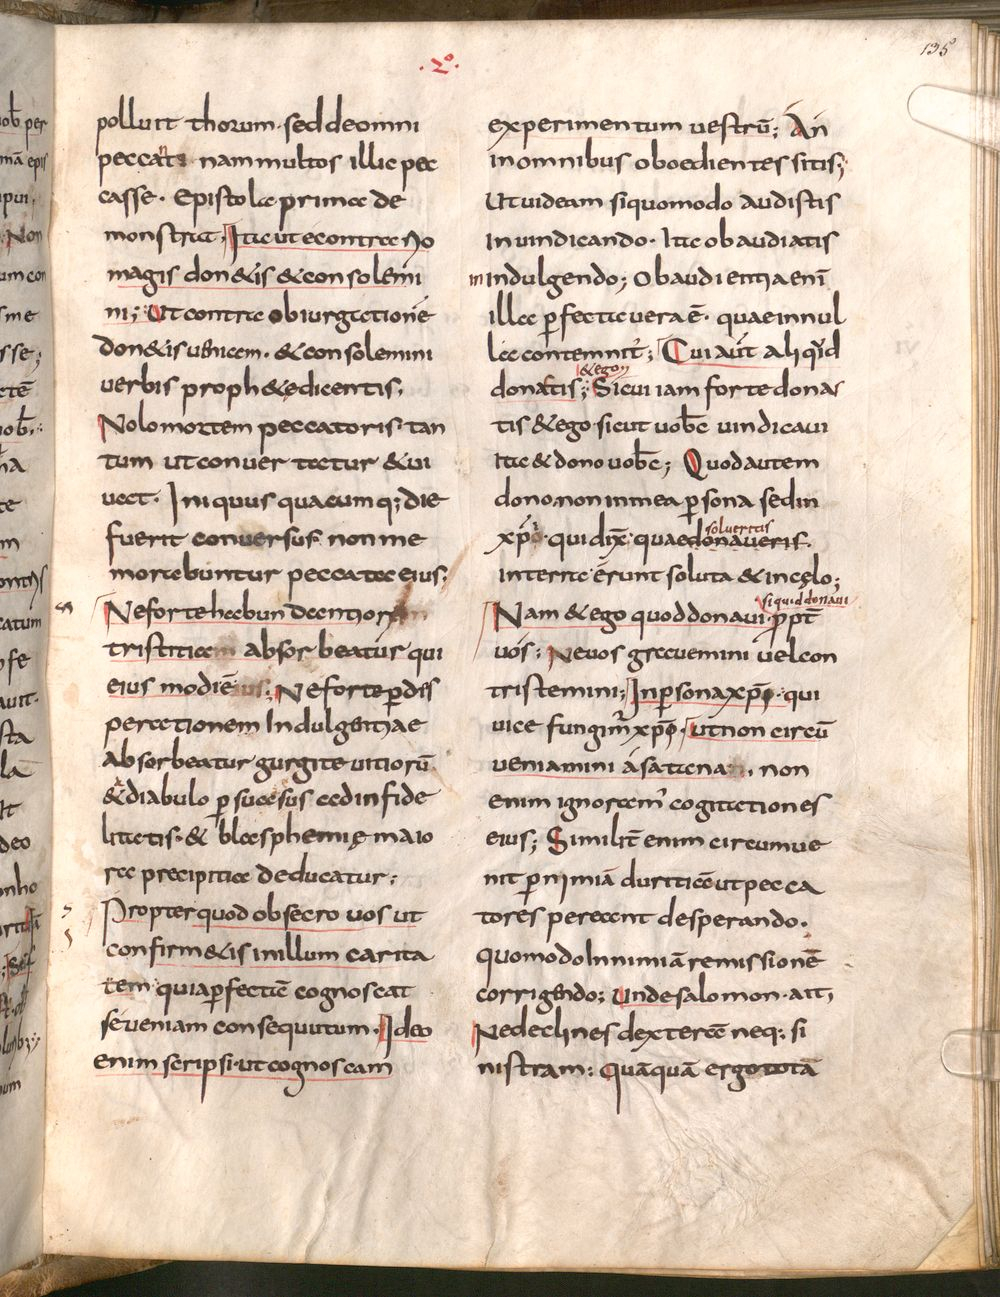 135
·2°·
polluit thorum· sed de omni
peccato nam multos illic pec
casse· Epistola prima de
monstrat; Ita ut e contrario
magis donetis & consolemi
ni; Ut contra obiurgationē
don&is ueniam· & consolemini
uerbis proph&ę dicentis;
Nolo mortem peccatoris· tan
tum ut conuertatur & ui
uat· Iniquus quacumq; die
fuerit conuersus non me
morabuntur peccata eius;
Ne forte habundantiori
tristitia absorbeatur qui
eius modi ē; Ne forte ꝑ dis
perationem Indulgentiae
absorbeatur gurgite uitiorū
& diabulo ꝑ suasus ad infide
litatis· & blasphemię maio
ra precipitia deducatur;
Propter quod obsecro uos ut
confirm&is in illum carita
tem quia ꝑfectae cognoscat
se ueniam consequutum· Ideo
enim scripsi· ut cognoscam
experimentum uestrū; An
in omnibus oboedientes sitis;
Ut uideam si quomodo audistis
in uindicando· Ita obaudiatis
in indulgendo; Obaudientia enī
illa ꝑfecta uera ē· quae in nul
la contemnit̄; Cui aut̄ aliqd
& ego
donatis; Si cui iam forte dona
tis & ego sicut uob̄ uindicaui
ita & dono uob̄; Quod autem
dono non in mea ꝑsona sed in
solueritis
xp̄o· qui dix̄· quae donaueris·
in terra erunt soluta & in cęlo;
si quid donaui
Nam & ego quod donaui· ꝓpt̄
uos; Ne uos grauemini uel con
tristemini; In ꝑsona xp̄i· qui
uice fungim̄ xp̄i· ut non circū
ueniamini a satana· non
enim ignoram' cogitationes
eius; Similit̄ enim circumue
nit ꝑ nimiā duritiā ut pecca
tores pereant desperando·
quomodo In nimiā remissionē
corrigendo; Unde salomon· ait,
Ne declines dexteram neq; si
nistram: Quāquā ergo totā